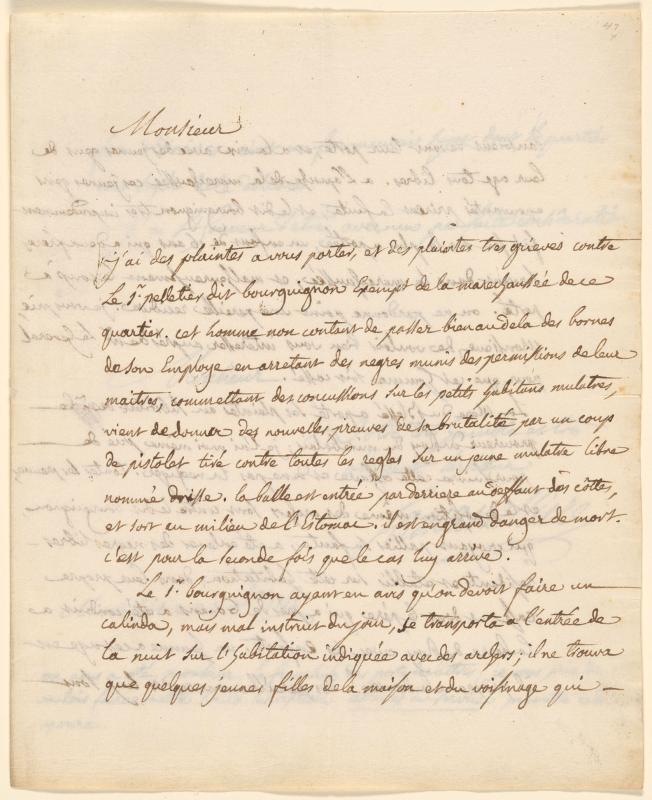 47
Monsieur
j'ai des plaintes a vous porter, et des plaintes tres grieves contre
Le Sr. pelletier dit bourguignon Exempt de la marechaussée de ce
quartier. cet homme non contant de passer bien au dela des bornes
de son Employe en arretant des negres munis des permissions de leur
maitres, commettant des concussions sur les petits habitans mulatres,
vient de donner des nouvelles preuves de sa brutalité par un coup
de pistolet tiré contre toutes les regles sur un jeune mulatre libre
nommé. la balle est entrée par derriere au deffaut des côttes,
et sort au milieu de l'Estomac. il est en grand danger de mort.
c'est pour la seconde fois que le cas luy arrive.
Le Sr. bourguignon ayant eu avis qu'on devoit faire un
calinda, mais mal instruit du jour, se transporta a l'entrée de
la nuit sur l'habitation indiquée avec des archers; il ne trouva
que quelques jeunes filles de la maison et du voisinage qui